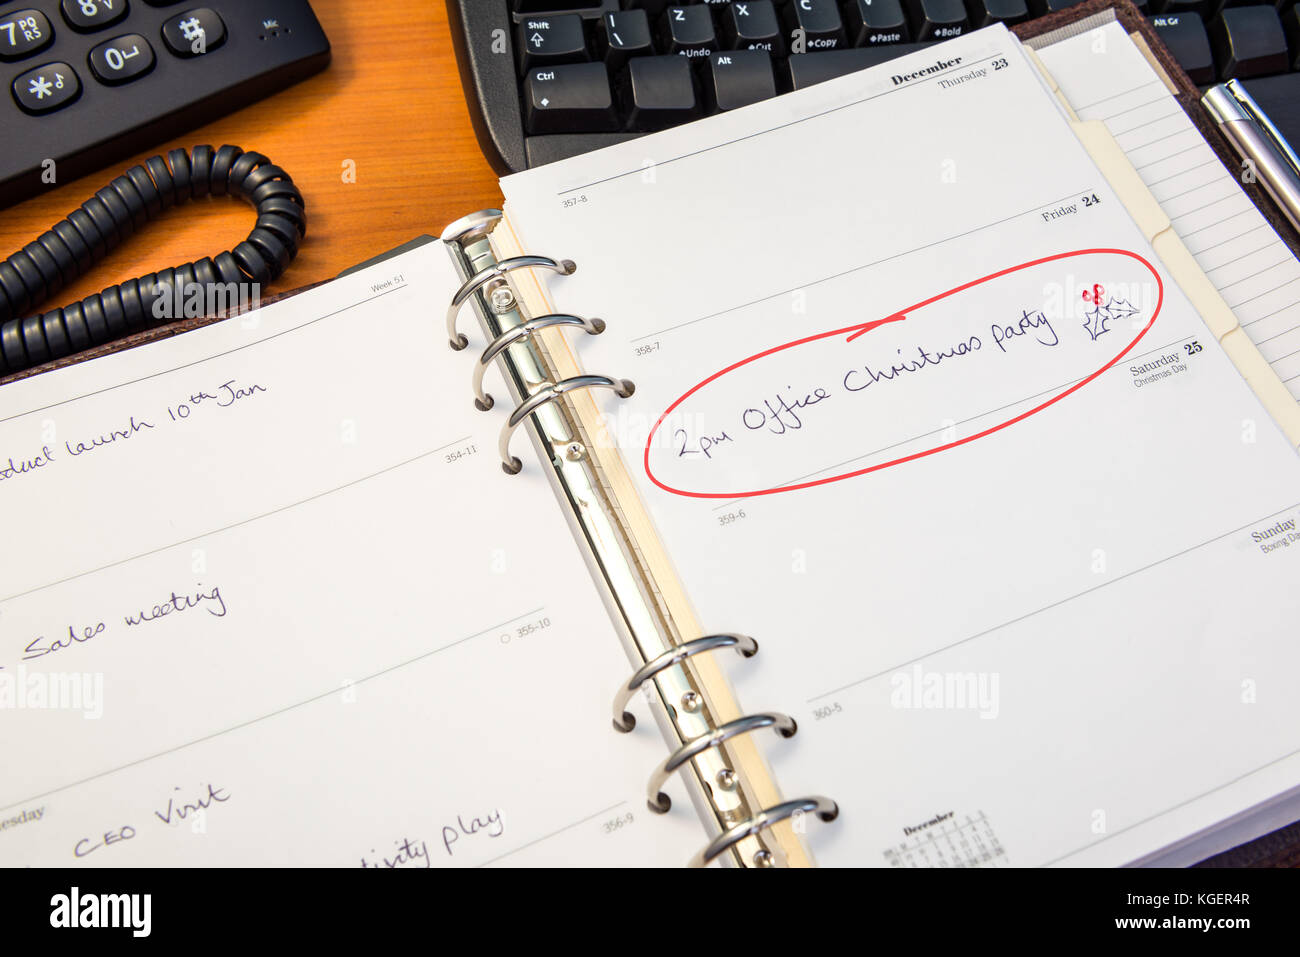 7 PQ
RS
8 V
0
#
*♪
Mic
Shift
Ctrl
\
Z
X
C
V
B
/Undo
/Cut
/Copy
/Paste
/Bold
Alt
Alt Gr
Week 51
oduct launch 10th Jan
354-11
Sales meeting
355-10
esday
CEO Visit
356-9
tivity play
December
Thursday 23
357-8
Friday 24
358-7
2pm Office Christmas party
Saturday 25
Christmas Day
359-6
Sunday
Boxing Da
360-5
December
alamy
Image ID: KGER4R
www.alamy.com